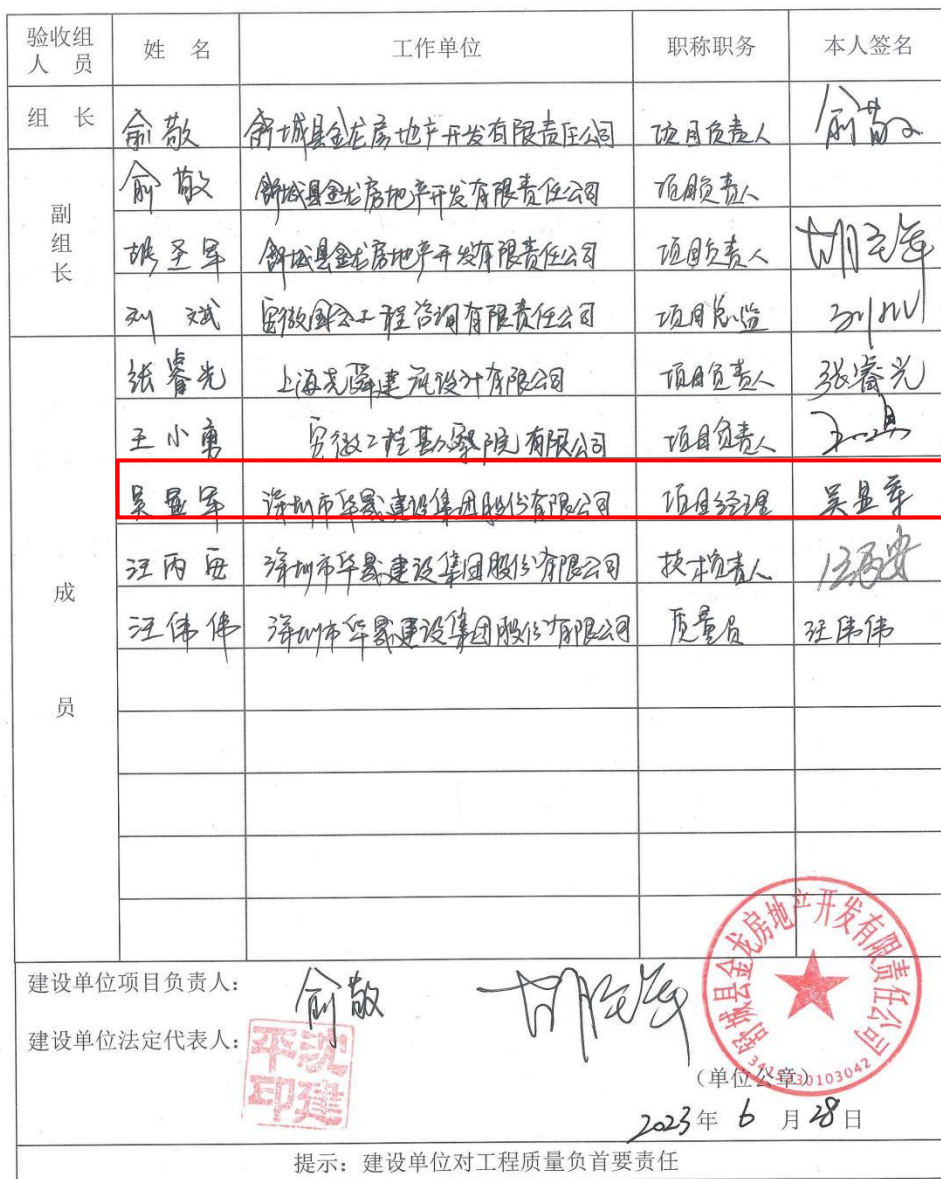 验收组人 员 姓 名 工作单位 职称职务 本人签名
组 长 俞敬 舒城县金龙房地产开发有限责任公司 项目负责人 俞敬
副组长 俞敬 舒城县金龙房地产开发有限责任公司 项目负责人
胡圣军 舒城县金龙房地产开发有限责任公司 项目负责人 胡圣军
刘斌 安徽国公工程咨询有限责任公司 项目总监
成员 张睿光 上海 建筑设计有限公司 项目负责人 张睿光
王小勇 安徽工程勘察院有限公司 项目负责人
吴显军 深圳市华晟建设集团股份有限公司 项目经理 吴显军
汪丙安 深圳市华晟建设集团股份有限公司 技术负责人 汪丙安
汪伟伟 深圳市华晟建设集团股份有限公司 质量员 汪伟伟
建设单位项目负责人: 俞敬 胡圣军
建设单位法定代表人: 沈建平印
舒城县金龙房地产开发有限责任公司
(单位公章)
2023年 6 月 28日
提示: 建设单位对工程质量负首要责任